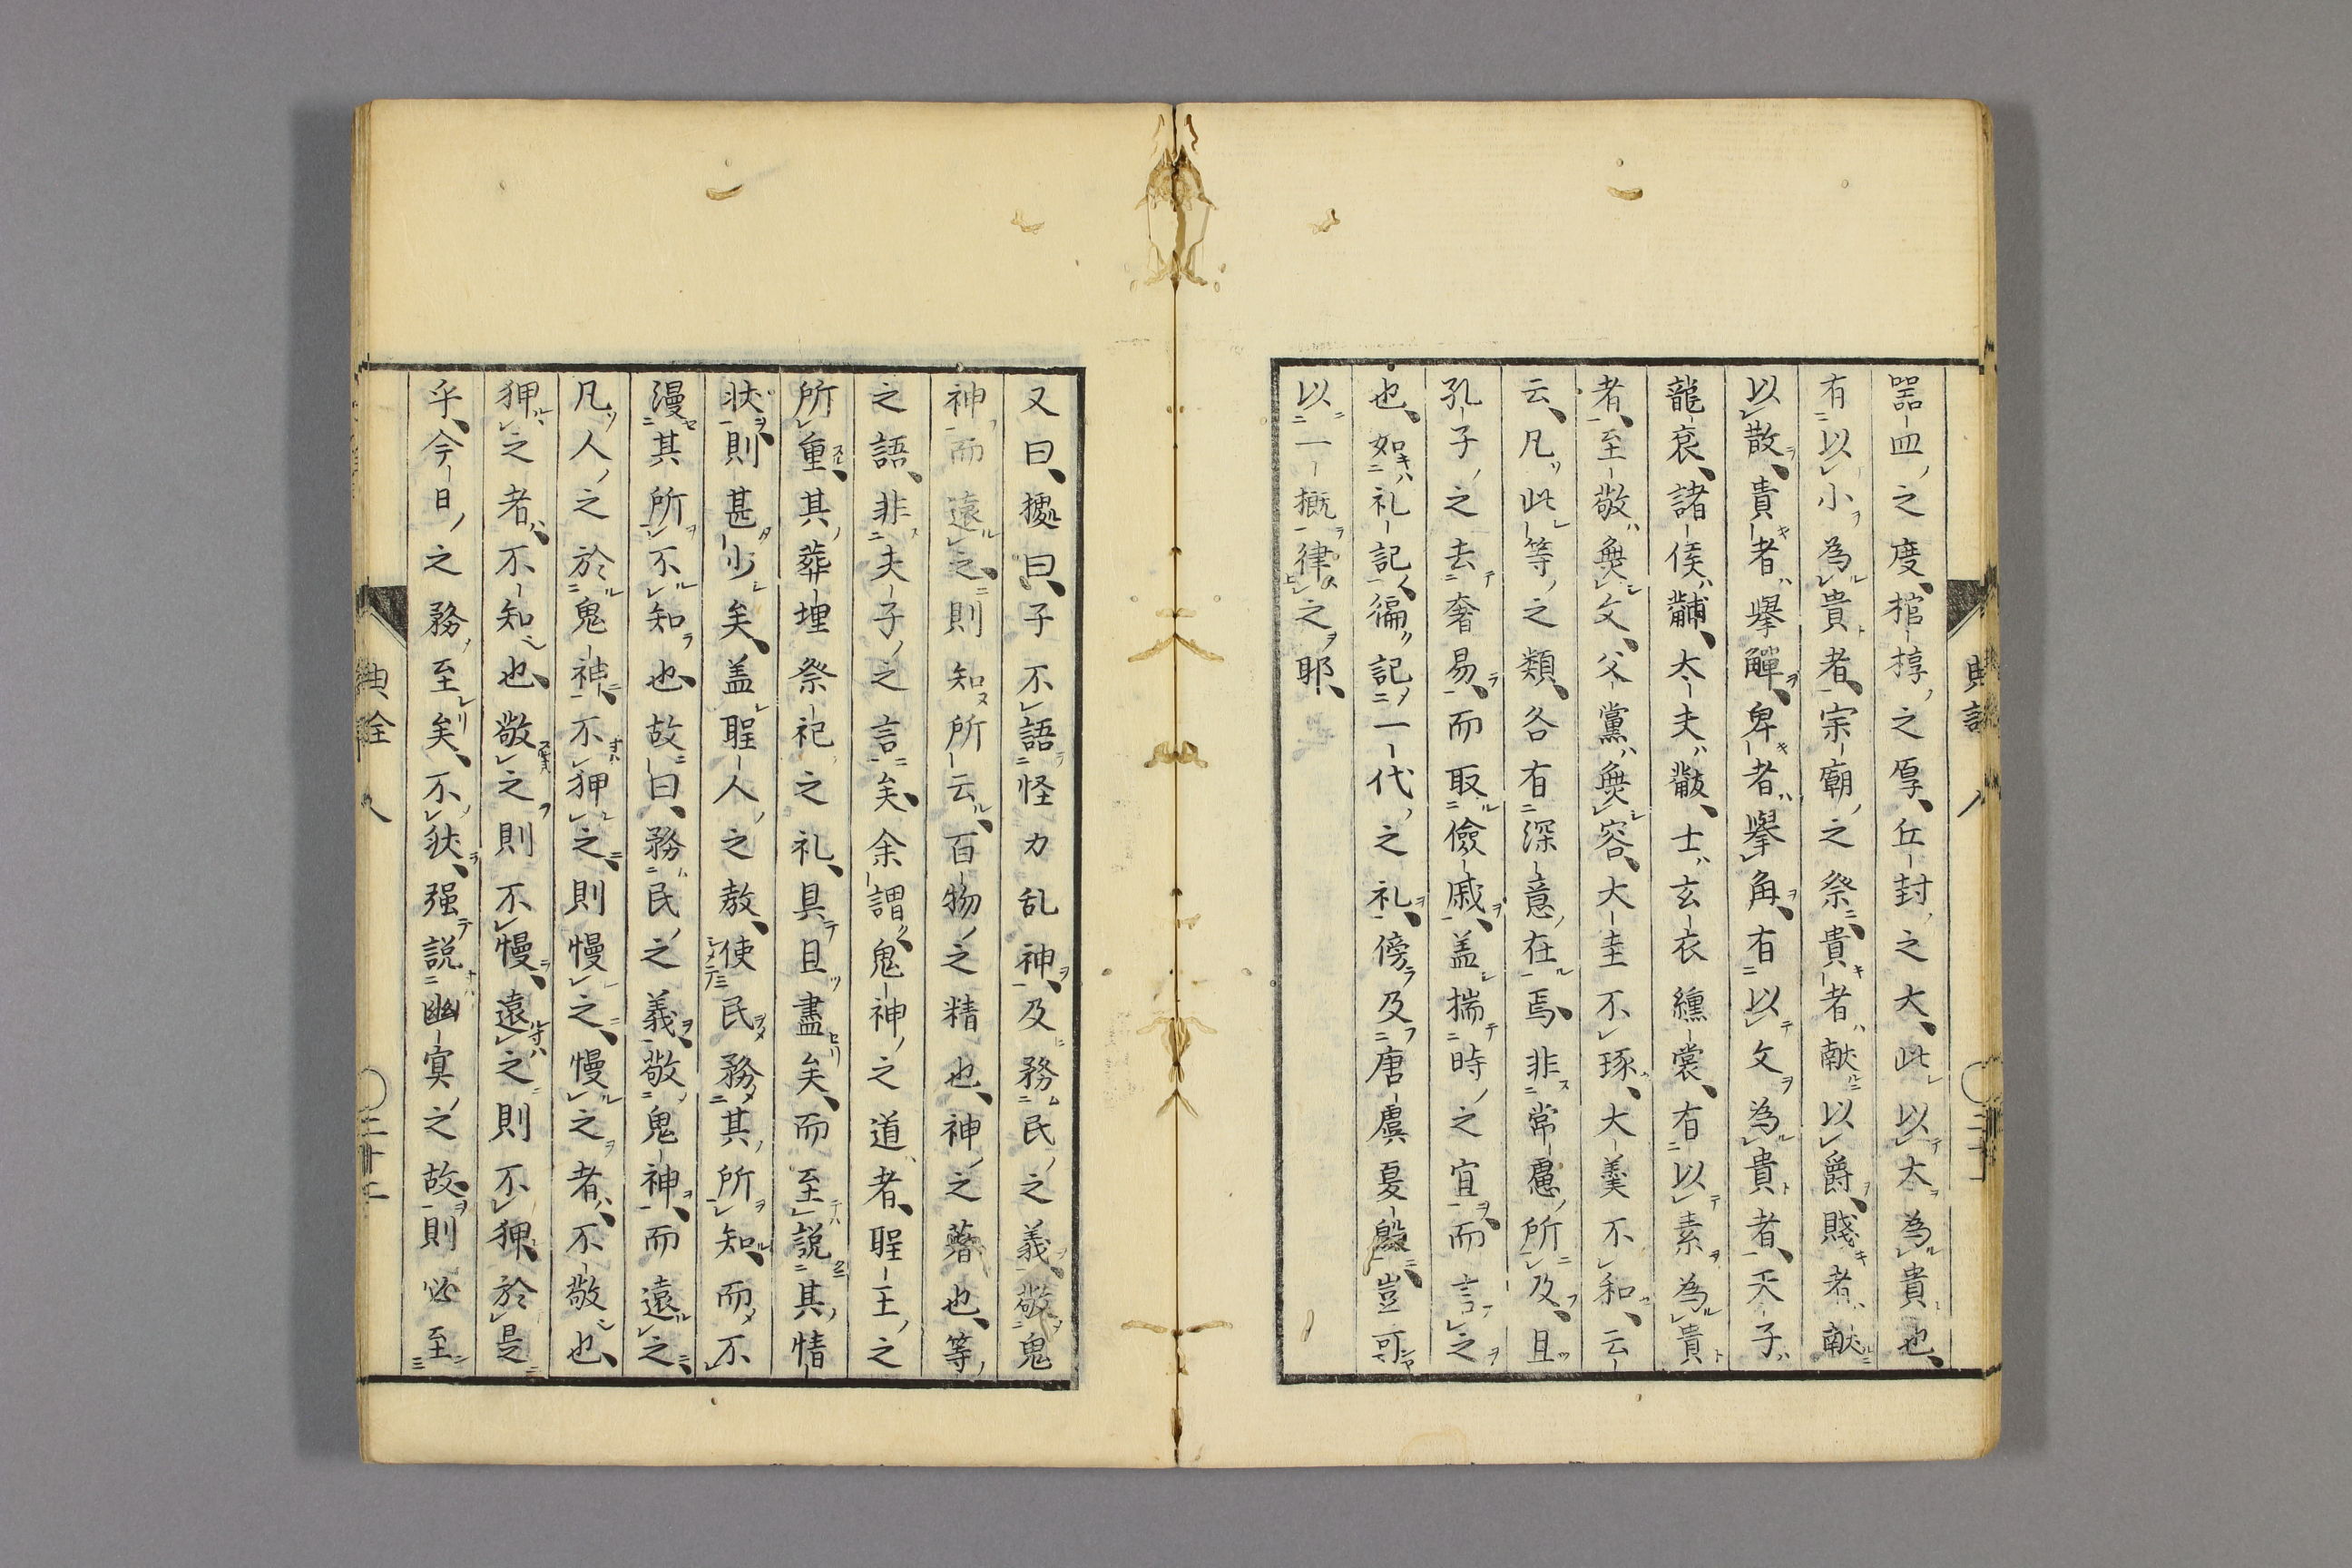 器皿之度、棺椁之厚、丘封之大、此以大為貴也、
有以小為貴者、宗廟之祭、貴者献以爵、賤者献
以散、貴者擧觶、卑者擧角、有以文為貴者、天子
龍衮、諸侯黼、大夫黻、士玄衣纁裳、有以素為貴
者、至敬無文、父黨無容、大圭不琢、大羹不和、云
云、凡此等之類、各有深意在焉、非常慮所及、且
孔子之去奢易、而取儉戚、盖揣時之宜、而言之
也、如礼記、徧記一代之礼、傍及唐虞夏殷、豈可
以一概律之耶、
又曰、據曰、子不語怪力乱神、及務民之義、敬鬼
神而遠之、則知所云、百物之精也、神之著也、等
之語、非夫子之言矣、余謂、鬼神之道者、聖王之
所重、其葬埋祭祀之礼、具且盡矣、而至說其情
狀、則甚少矣、盖聖人之敎、使民務其所知、而不
漫其所不知也、故曰、務民之義、敬鬼神、而遠之、
凡人之於鬼神、不狎之、則慢之、慢之者、不敬也、
狎之者、不知也、敬之則不慢、遠之則不狎、於是
乎、今日之務至矣、不然、强說幽冥之故、則必至